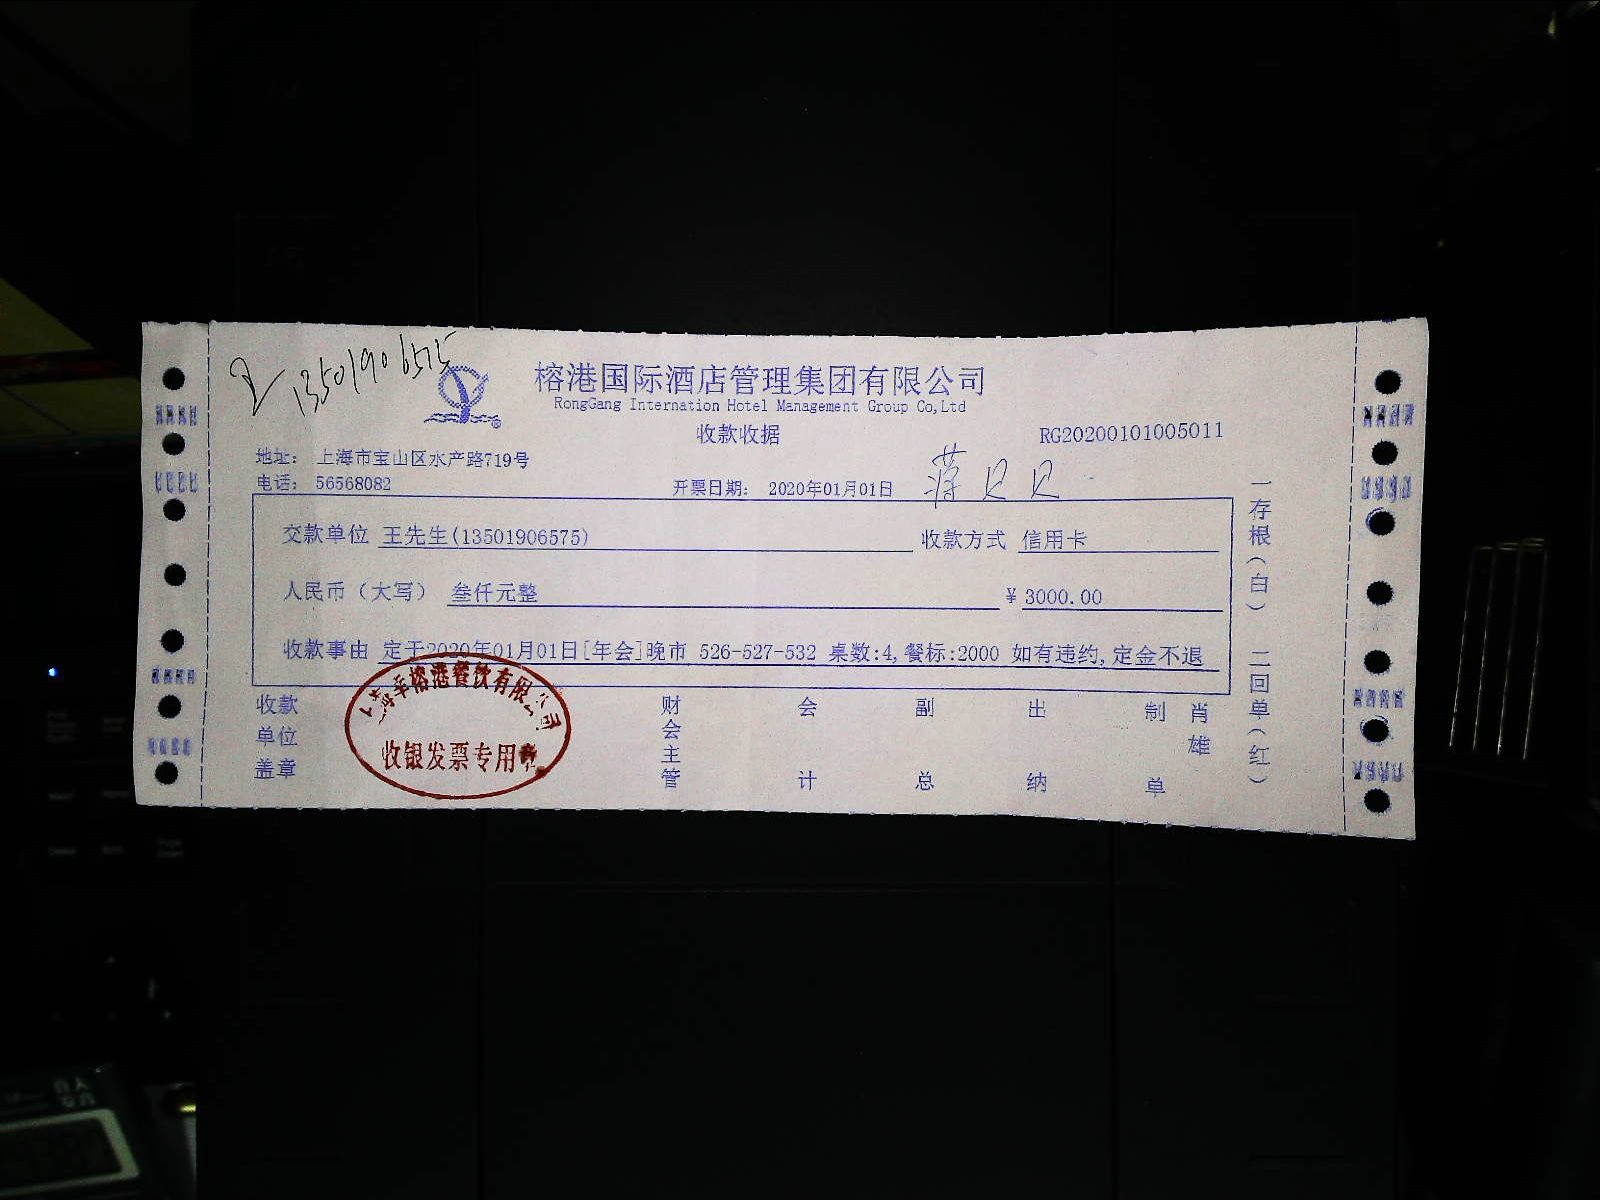 13501906575
榕港国际酒店管理集团有限公司
RongGang Internation Hotel Management Group Co,Ltd
收款收据
RG20200101005011
地址： 上海市宝山区水产路719号
电话： 56568082
开票日期： 2020年01月01日
蒋贝贝
交款单位 王先生(13501906575) 收款方式 信用卡
人民币（大写） 叁仟元整 ￥3000.00
收款事由 定于2020年01月01日[年会]晚市 526-527-532 桌数:4,餐标:2000 如有违约,定金不退
收款单位盖章
财会主管
会计
副总
出纳
制单
肖雄
一存根（白） 二回单（红）
榕港餐饮有限公司
收银发票专用章